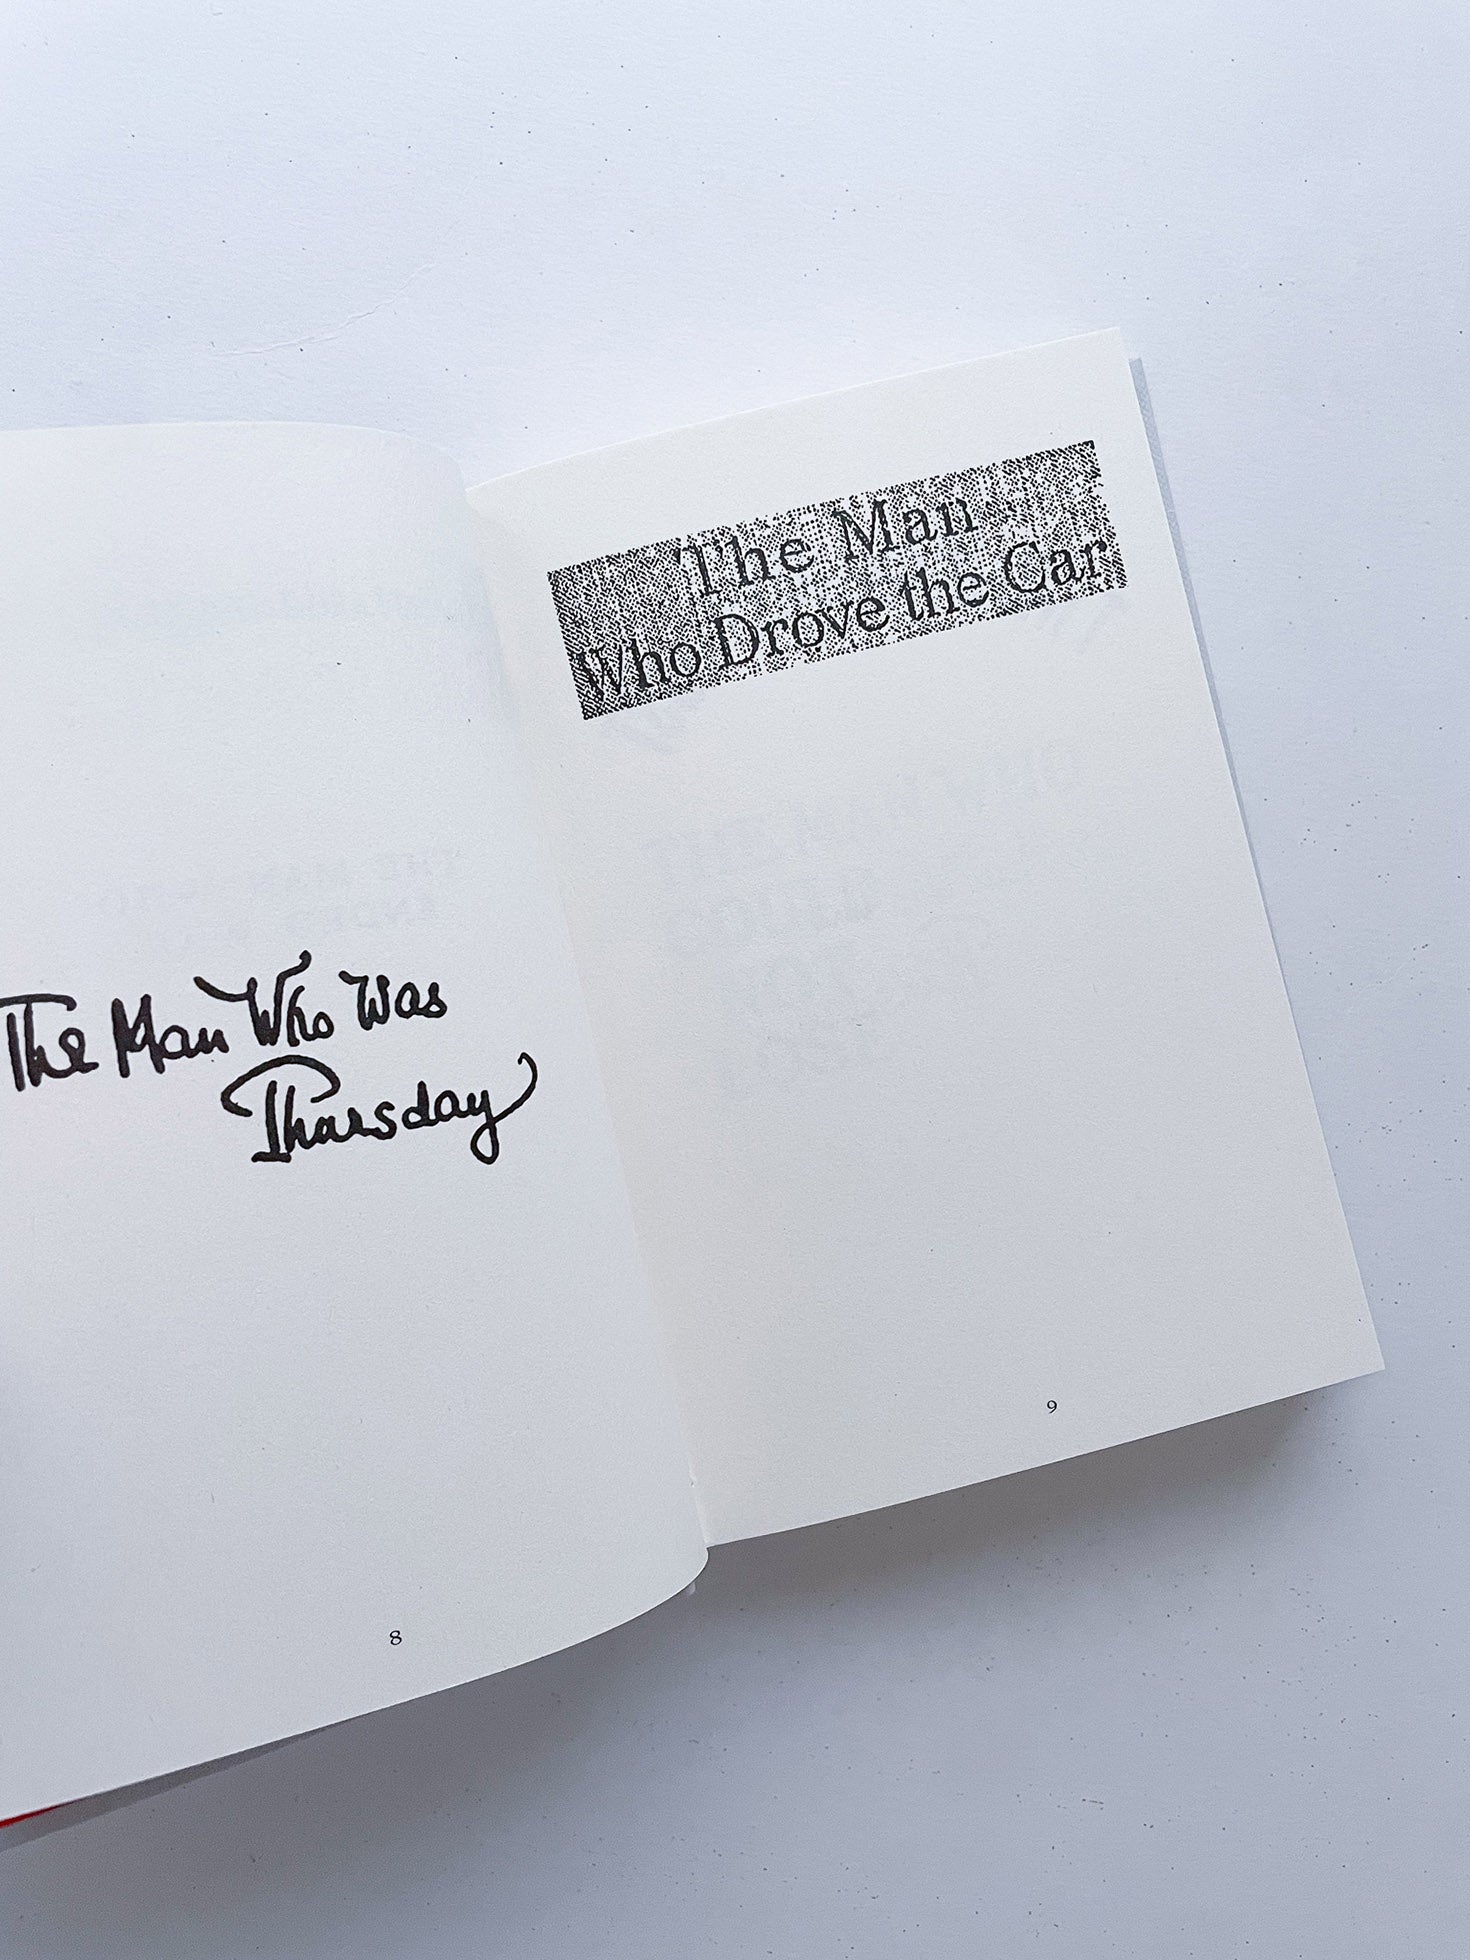 The Man Who Was
Thursday
8
The Man
Who Drove the Car
9